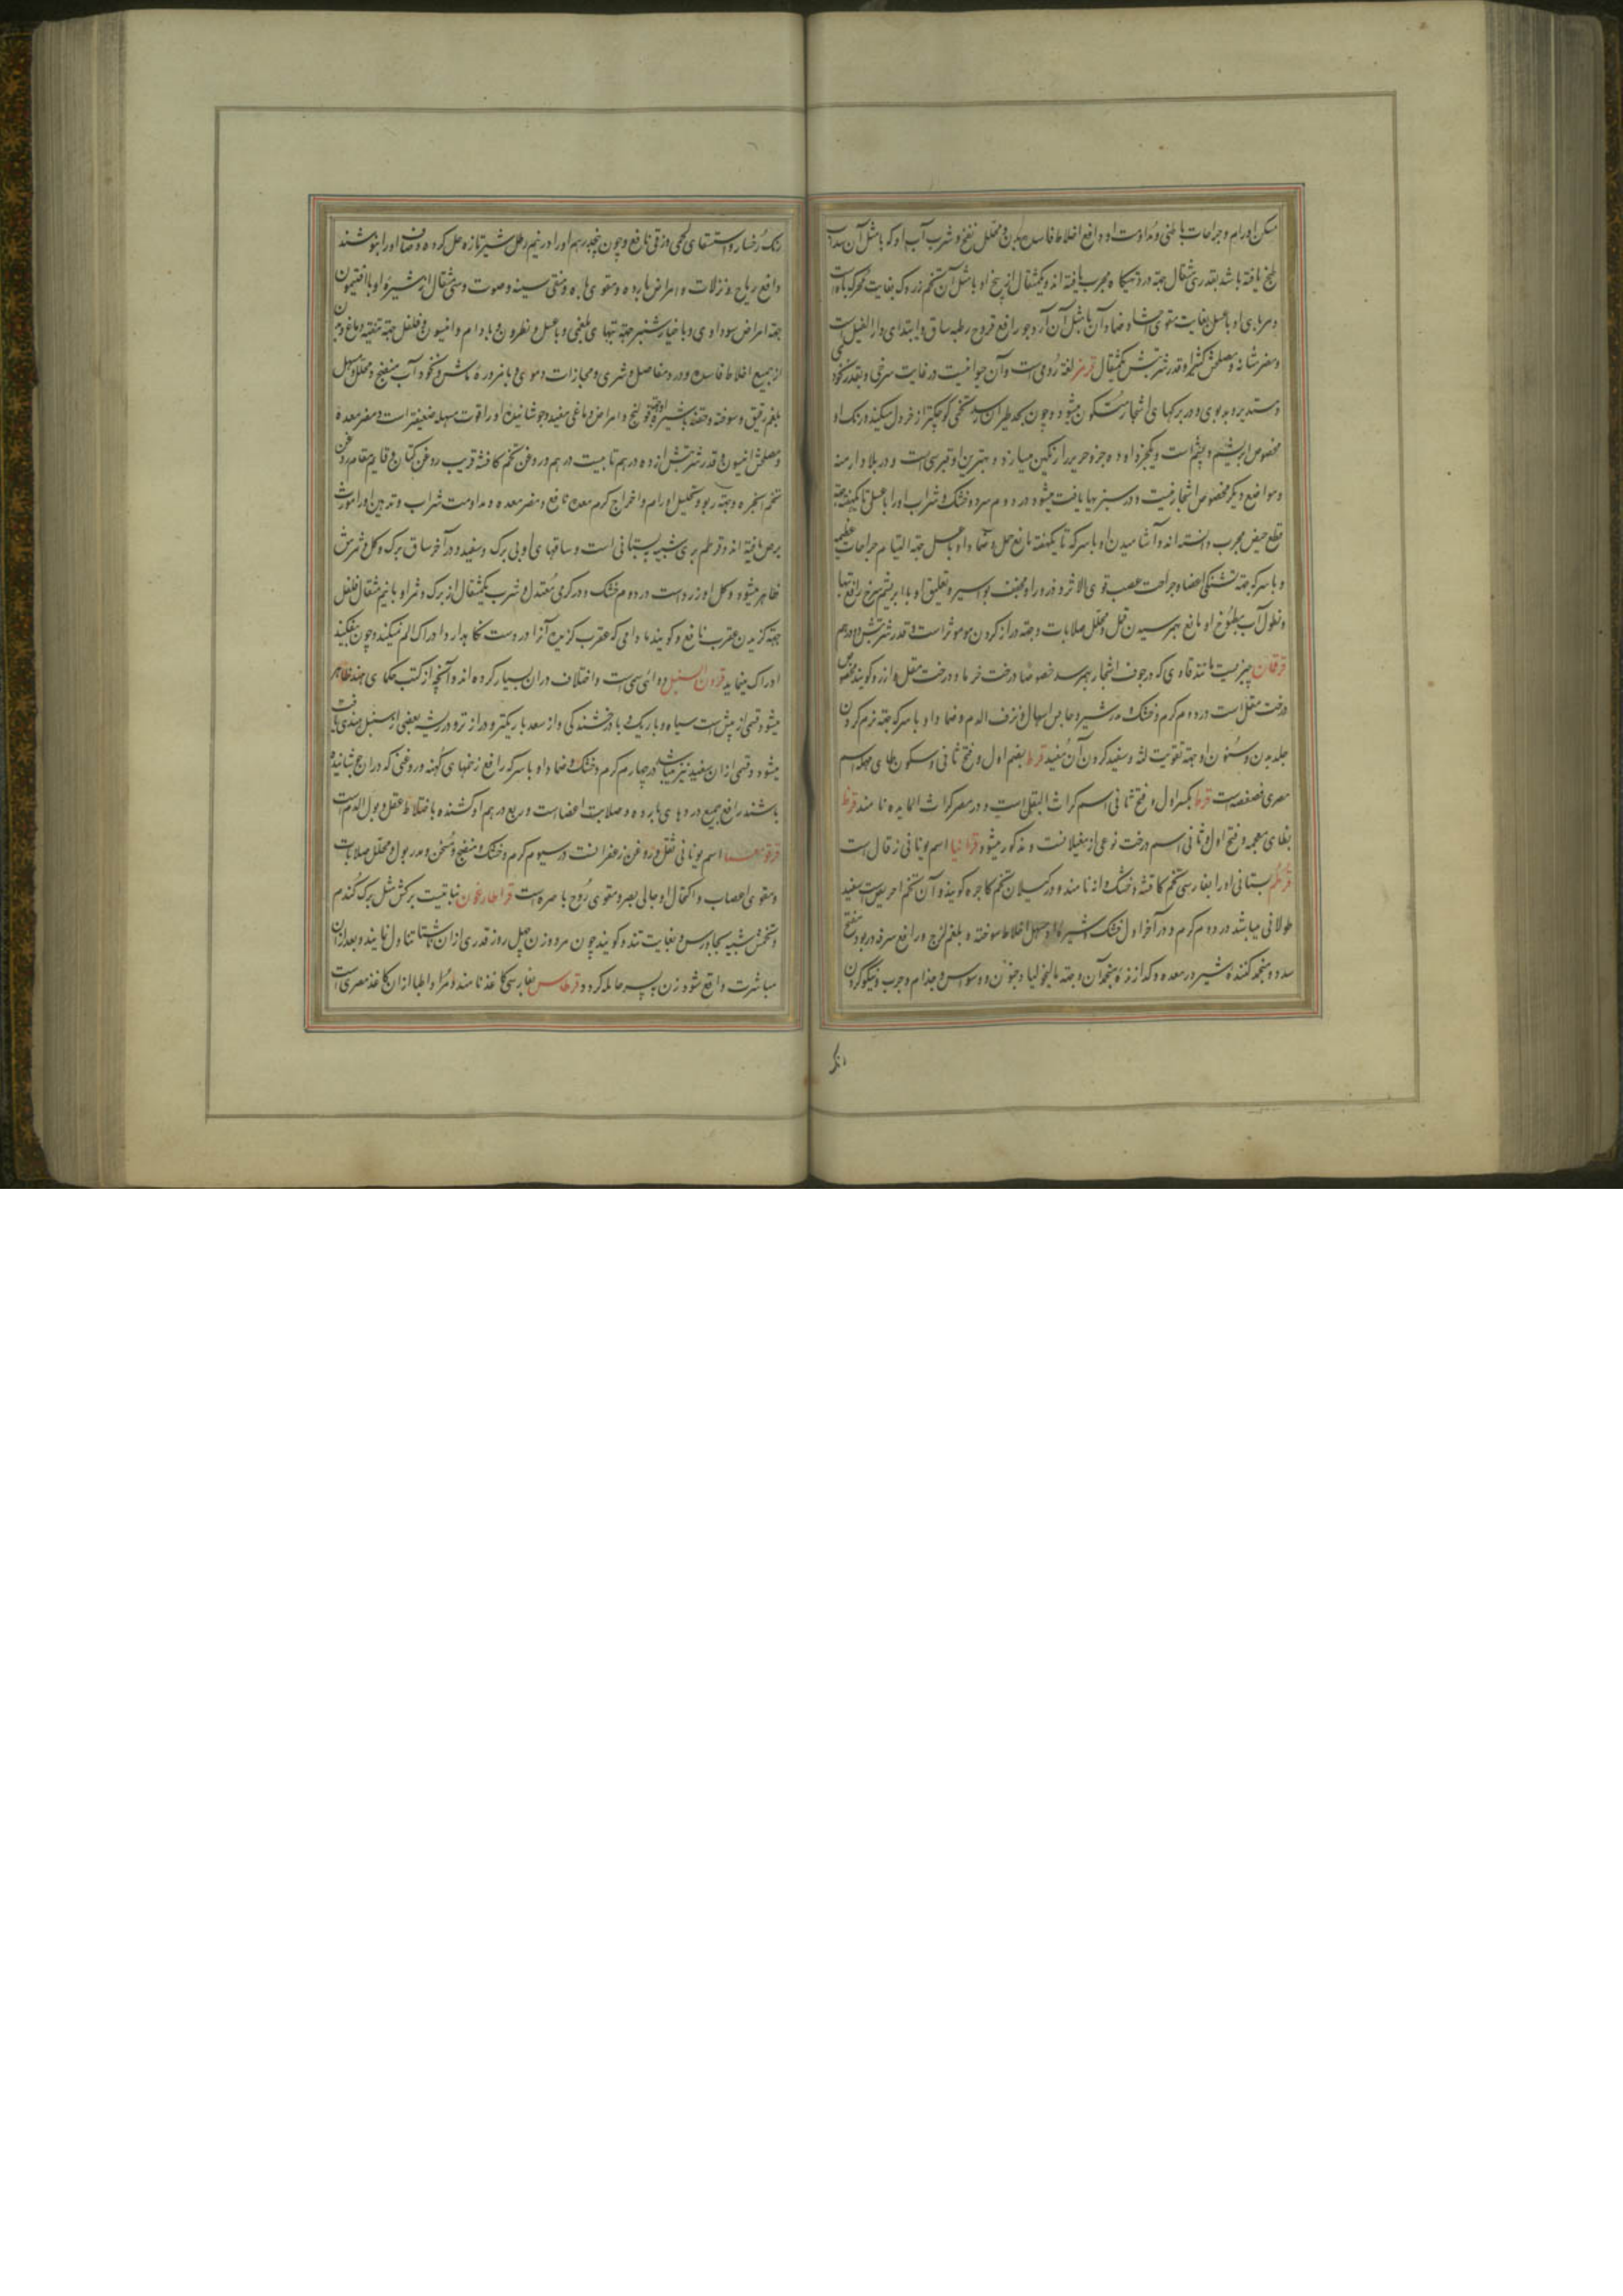 مسکن اورام و جراحات باطنی و مداومت او دافع اخلاط فاسده بدن و محلل نفخ و شرب آب او که با مثل آن سداب
طبخ یافته باشد بقدر سی مثقال جهة درد تهیکاه مجرب یافته‌اند و یکمثقال از بیخ او با مثل آن تخم زردک بغایت محرک باه است
و مربای او با عسل بغایت مقوی احشا و ضماد آن با مثل آن آرد جو رافع قروح رطبه ساق و ابتدای داء الفیل است
و مضر مثانه و مصلحش کثیرا و قدر شربتش یکمثقال قرمز لغة رومی است و آن حیوانیست در غایت سرخی و بقدر نخود
و مستدیر و بدبوی و در برکهای اشجار متکون میشود و چون بحد طیران رسد تخمی کوچکتر از خردل میکند و رنک او
مخصوص ابریشم و پشم است و یکجزو او ده جزو حریر را رنکین میسازد و بهترین او قبرسی است و در بلاد ارمنه
و مواضع دیکر مخصوص اشجار نیست و در سبزیها یافت میشود در دوم سرد و خشک و شراب او را با عسل تا یکهفته جهة
قطع حیض مجرب دانسته‌اند و آشامیدن او با سرکه تا یکهفته مانع حمل و ضماد او با عسل جهة التیام جراحات عظیمه
و با سرکه جهة شکستکی اعضا و جراحت عصب قوی الاثر و ذرور او مجفف بواسیر و تعلیق او با ابریشم سرخ رافع تبها
و نطول آب مطبوخ او مانع بهم رسیدن قمل و محلل صلابات و جهة دراز کردن مو موثر است و قدر شربتش دو درهم
قرقان چیزیست مانند قاوی که در جوف اشجار بهم رسد خصوصا درخت خرما و درخت مقل ازرق کویند مخصوص
درخت مقل است در دوم کرم و خشک و مدر شیر و حابس اسهال و نزف الدم و ضماد او با سرکه جهة نرم کردن
جلد بدن و سنون او جهة تقویت لثه و سفید کردن آن مفید قرط بضم اول و فتح ثانی و سکون طای مهمله اسم
مصری فصفصه است قرط بکسر اول و فتح ثانی اسم کراث البقل است و در مصر کراث المایده نامند قرظ
بظای معجمه و فتح اول و ثانی اسم درخت نوعی از مغیلانست و مذکور میشود قرانیا اسم یونانی زقال است
قرطم بستانی او را بفارسی تخم کافشه و خشک دانه نامند و در کیلان تخم کاجره کویند و آن تخم احریض است سفید
طولانی میباشد در دوم کرم و در آخر اول خشک شیره او مسهل اخلاط سوخته و بلغم لزج و رافع سرفه و ربو و مفتح
سدد و منجمد کننده شیر در معده و کدازنده منجمد آن و جهة مالیخولیا و جنون و وسواس و جذام و جرب و نیکو کردن
رنک
رنک رخسار و استسقای لحمی و زقی نافع و چون پنجدرهم او را در نیم رطل شیر تازه حل کرده و صاف او را بنوشند
دافع ریاح و نزلات و امراض بارده و مقوی باه و منقی سینه و صوت و سی مثقال از شیره او با افتیمون
جهة امراض سوداوی و با خیارشنبر جهة تبهای بلغمی و با عسل و نطرون و بادام و انیسون و فلفل جهة تنقیه دماغ و بدن
از جمیع اخلاط فاسده و درد مفاصل و شری و مجازات دموی و با مزوره ماش و نخود آب منضج و محلل و مسهل
بلغم رقیق و سوخته و حقنه با شیره او جهة قولنج و امراض دماغی مفید و جوشانیدن او را قوت مسهله ضعیفتر است و مضر معده
و مصلحش انیسون و قدر شربتش از ده درهم تا بیست درهم و روغن تخم کافشه قریب روغن کتان و قایم مقام روغن
تخم انجره و جهة ربو و تحلیل اورام و اخراج کرم معده نافع و مضر معده و مداومت شراب و تدهین او را مورث
برص یافته‌اند و قرطم بری شبیه ببستانی است و ساقهای او بی برک و سفید و در آخر ساق برک و کل و ثمرش
ظاهر میشود و کل او زرد است در دوم خشک و در کرمی معتدل و شرب یکمثقال از برک و ثمر او با نیم مثقال فلفل
جهة کزیدن عقرب نافع و کویند مادامی که عقرب کزیده آنرا در دست نکاهدارد ادراک الم نمیکند و چون بیفکند
ادراک مینماید قرون السنبل دوائی سمی است و اختلاف در آن بسیار کرده‌اند و آنچه از کتب حکمای هند ظاهر
میشود قسمی از بیش است سیاه و باریک و با درخشندکی و از سعد باریکتر و درازتر و در ریشه بعضی از سنبل هندی یافت
میشود و قسمی از آن سفید نیز میباشد در چهارم کرم و خشک و ضماد او با سرکه رافع زخمهای کهنه و روغنی که در آن جوشانیده
باشند رافع جمیع دردهای بارده و صلابت اعضاست و ربع درهم او کشنده باختلاط عقل و بول الدم است
قرقومعما اسم یونانی ثفل روغن زعفرانست در سیوم کرم و خشک و منضج و مسخن و مدر بول و محلل صلابات
و مقوی اعصاب و اکتحال او جالی بصر و مقوی روح باصره است قراطارغون نباتیست برکش مثل برک کندم
و تخمش شبیه بجاورس و بغایت تند و کویند چون مرد و زن چهل روز قدری از آن ناشتا تناول نمایند و بعد از آن
مباشرت واقع شود زن به پسر حامله کردد قرطاس بفارسی کاغذ نامند و مراد اطبا از آن کاغذ مصری است